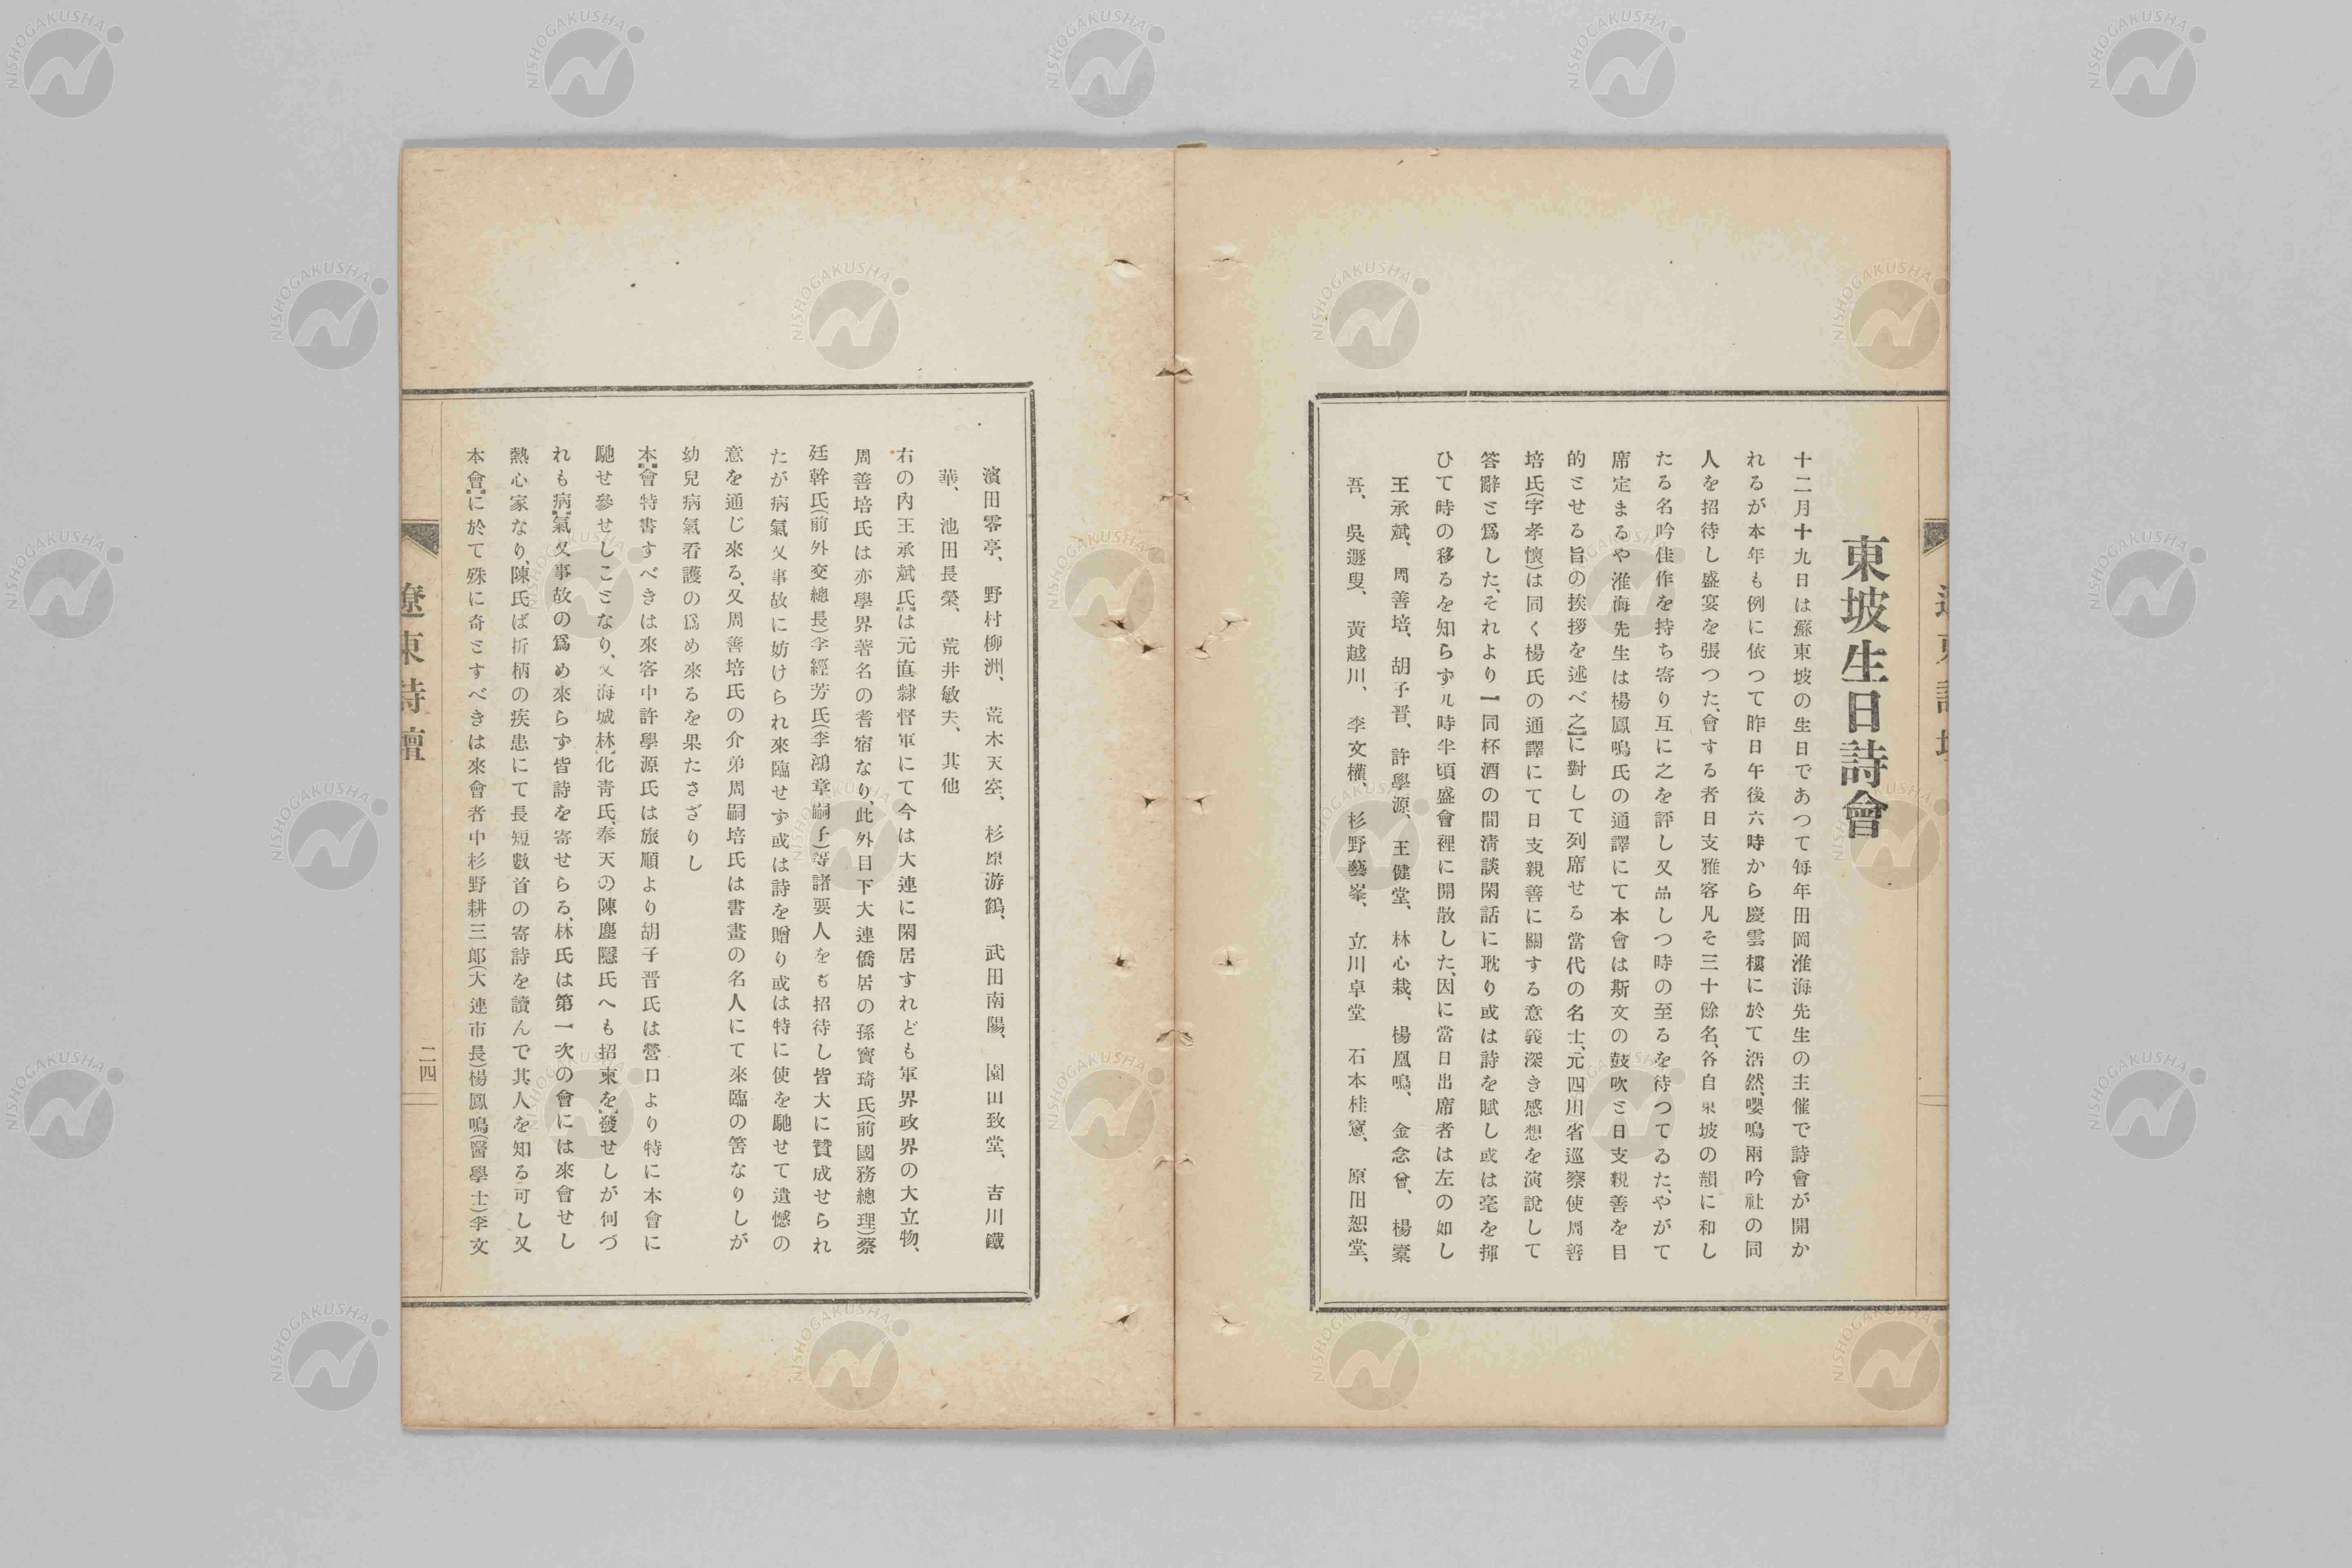 東坡生日詩會
十二月十九日は蘇東坡の生日であつて每年田岡淮海先生の主催で詩會が開か
れるが本年も例に依つて昨日午後六時から慶雲樓に於て浩然、嚶鳴兩吟社の同
人を招待し盛宴を張つた、會する者日支雅客凡そ三十餘名、各自東坡の韻に和し
たる名吟佳作を持ち寄り互に之を評し又品しつ時の至るを待つてゐた、やがて
席定まるや淮海先生は楊鳳鳴氏の通譯にて本會は斯文の鼓吹と日支親善を目
的とせる旨の挨拶を述べ之に對して列席せる當代の名士、元四川省巡察使周善
培氏(字孝懷)は同く楊氏の通譯にて日支親善に關する意義深き感想を演說して
答辭と爲した、それより一同杯酒の間淸談閑話に耽り或は詩を賦し或は毫を揮
ひて時の移るを知らず九時半頃盛會裡に開散した、因に當日出席者は左の如し
王承斌、周善培、胡子晋、許學源、王健堂、林心栽、楊鳳鳴、金念曾、楊槖
吾、吳遯叟、黃越川、李文權、杉野藝峯、立川卓堂 石本桂窓、原田恕堂、
濱田零亭、野村柳洲、荒木天空、杉原游鶴、武田南陽、園山致堂、吉川鐵
華、池田長榮、荒井敏夫、其他
右の內王承斌氏は元直隷督軍にて今は大連に閑居すれども軍界政界の大立物、
周善培氏は亦學界著名の耆宿なり、此外目下大連僑居の孫寳琦氏(前國務總理)蔡
廷幹氏(前外交總長)李經芳氏(李鴻章嗣子)等諸要人をも招待し皆大に贊成せられ
たが病氣又事故に妨けられ來臨せず或は詩を贈り或は特に使を馳せて遺憾の
意を通じ來る、又周善培氏の介弟周嗣培氏は書畫の名人にて來臨の筈なりしが
幼兒病氣看護の爲め來るを果たさざりし
本會特書すべきは來客中許學源氏は旅順より胡子晋氏は營口より特に本會に
馳せ參せしことなり、又海城林化靑氏、奉天の陳塵隱氏へも招柬を發せしが何づ
れも病氣又事故の爲め來らず皆詩を寄せらる、林氏は第一次の會には來會せし
熱心家なり、陳氏ば折柄の疾患にて長短數首の寄詩を讀んで其人を知る可し又
本會に於て殊に奇とすべきは來會者中杉野耕三郞(大連市長)楊鳳鳴(醫學士)李文
遼東詩壇
二四